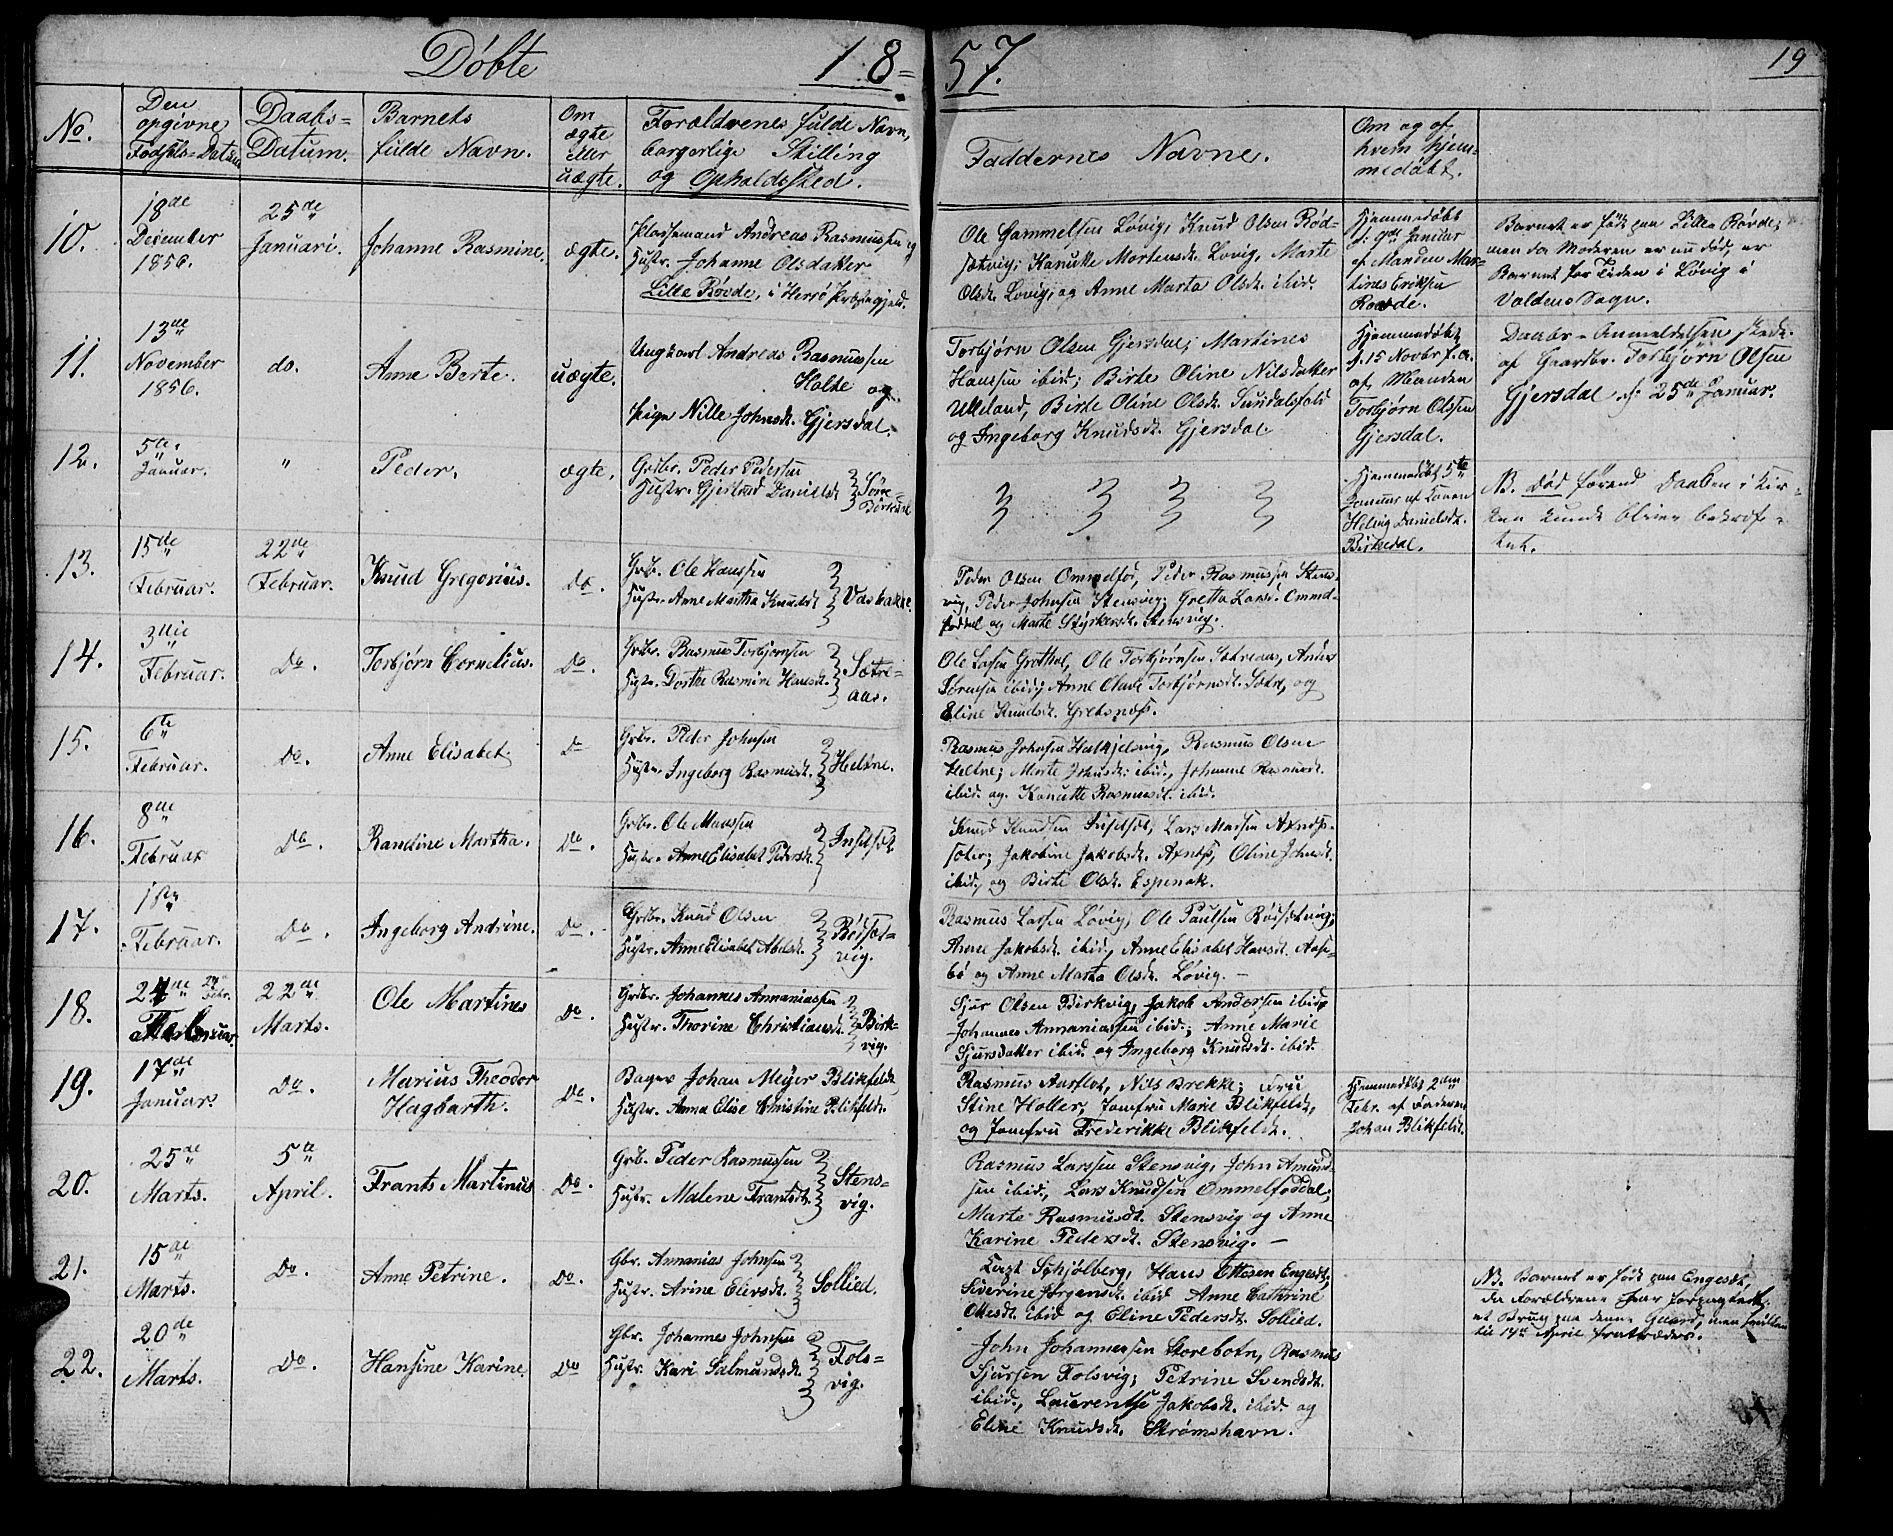 Døbte 18=57. 19
No.
Den opgivne Fødsels-Datum
Daabs=Datum.
Barnets fulde Navn.
Om ægte eller uægte.
Forældrenes fulde Navn, borgerlige Stilling og Opholdssted.
Faddernes Navne.
Om og af hvem hjemmedøbt.
10.
18de December 1856.
25de Januari.
Johanne Rasmine.
ægte.
Pladsemand Andreas Rasmussen og
Hustr. Johanne Olsdatter
Lille Røvde, i Herrø Præstegjeld.
Ole Gammelsen Løvig, Knud Olsen Rød-
sætvig; Kanutte Mortensdt. Løvig, Marte
Olsdt. Løvig, og Anne Marta Olsdt. ibid.
Hjemmedøbt
d. 9de Januar
af Manden Mar-
tines Eriksen
Røvde.
Barnet er født paa Lille Røvde;
men da Moderen er nu død, er
Barnet for Tiden i Løvig i
Voldens Sogn.
11.
13de November 1856.
do.
Anne Berte.
uægte.
Ungkarl Andreas Rasmussen
Holte og
Pige Nille Johnsdt. Gjersdal.
Torbjørn Olsen Gjersdal; Martines
Hanssen ibid; Birte Oline Nilsdatter
Ulleland, Birte Oline Olsdt. Sundalsfold
og Ingeborg Knudsdt. Gjersdal
Hjemmedøbt
d. 15 Novbr. f. a.
af Manden
Torbjørn Olssen
Gjersdal.
Daabs-Anmeldelsen skede
af Gaardbr. Torbjørn Olsen
Gjersdal d. 25de Januar.
12.
5te Januar.
"
Peder.
ægte.
Grdbr. Peder Pedersen
Hustr. Gjertrud Danielsdt.
Hjemmedøbt 5te
Januar af Konen
Heling Danielsdt.
Birkedal.
NB. død førend Daaben i Kir-
ken kunde blive bekræf-
tet.
13.
15de Februar.
22de Februar.
Knud Gregorius.
do.
Grdb. Ole Hanssen
Hustr. Anne Martha Knudsdt
Vasbakke.
Peder Olsen Ommelfot, Peder Rasmussen Stens-
vig, Peder Johnsen Stensvig; Gretta Larsd. Ommel-
foddal og Marte Styrkersdt. Stensvig.
14.
3die Februar.
Do.
Torbjørn Cornelius.
Do.
Grdbr. Rasmus Torbjørnsen
Hustr. Dorthe Rasmine Hansdt.
Sætre-
aas.
Ole Larsen Grøthol, Ole Torbjørnsen Sætreaas, Anders
Sørensen ibid; Anne Oline Torbjørnsdt. Sætre, og
Eline Knudsdt. Greksnæs.
15.
6te Februar.
Do.
Anne Elisabet.
Do
Grdbr. Peder Johnsen
Hustr. Ingeborg Rasmusdt.
Heltne.
Rasmus Johnsen Halkjelsvig, Rasmus Olsen
Heltne; Marte Johnsdt. ibid., Johanne Rasmusdt.
ibid. og Kanutte Rasmusdt. ibid.
16.
8de Februar
Do.
Randine Martha.
Do.
Grdbr. Ole Monssen
Hustr. Anne Elisabet Pedersdt.
Insetsæt.
Knud Knudsen Insetsæt, Lars Larsen Axnæs-
sæter; Jakobine Jakobsdt. Axnæs, Oline Johnsdt.
ibid, og Birte Olsdt. Espenak.
17.
1ste Februar.
Do.
Ingeborg Andrine.
Do.
Grdbr. Knud Olsen
Hustr. Anne Elisabet Abelsdt.
Rødsæt-
vig.
Rasmus Larsen Løvig, Ole Paulsen Rødsætvig;
Anne Jakobsdt. ibid, Anne Elisabet Hansdt. Aase-
bø og Anne Marta Olsdt. Løvig. -
18.
24de 24 Febr. Februar.
22de Marts.
Ole Martines
Do.
Grdbr. Johannes Annaniassen
Hustr. Thorine Christiansdt.
Birk-
vig.
Sjur Olsen Birkvig, Jakob Andersen ibid,
Johannes Annaniassen ibid.; Anne Marie
Sjursdatter ibid. og Ingeborg Knudsdt. ibid.
19.
17de Januar.
Do.
Marius Theodor
Hagbarth.
Do.
Bager Johan Meyer Blikfeldt
Hustr. Anna Elise Christine Blikfeldt.
Rasmus Aarflot, Nils Brekke; Fru
Stine Holler, Jomfru Marie Blikfeldt,
og Jomfru Frederikke Blikfeldt.
Hjemmedøbt 2den
Febr. af Faderen
Johan Blikfeldt.
20.
25de Marts.
5te April.
Frants Martinus
Do.
Grb. Peder Rasmussen
Hustr. Malene Frantsdt.
Stens-
vig.
Rasmus Larssen Stensvig, John Amund-
sen ibid., Lars Knudsen Ommelfoddal;
Marte Rasmusdt. Stensvig og Anne
Karine Pedersdt. Stensvig. -
21.
15de Marts.
Do.
Anne Petrine.
Do.
Gbr. Annanias Johnsen
Hustr. Arine Eliersdt.
Sollied.
Schjølberg, Hans Ottesen Engesdt.
Siverine Jørgensdt. ibid Anne Cathrine
Ottesdt. ibid og Eline Pedersdt. Sollied.
NB. Barnet er født paa Engeset,
da Forældrene har forpagtet
et Brug paa denne Gaard, men
til 14de April fratræder.
22.
20de Marts.
Do.
Hansine Karine.
Do
Gbr. Johannes Johnsen
Hustr. Kari Salmundsdt.
Fols=
vig.
John Johannessen Storebotn, Rasmus
Sjursen Folsvig; Petrine Svendsdt.
ibid., Laurentse Jakobsdt. ibid. og
Eline Knudsdt. Strømshavn.